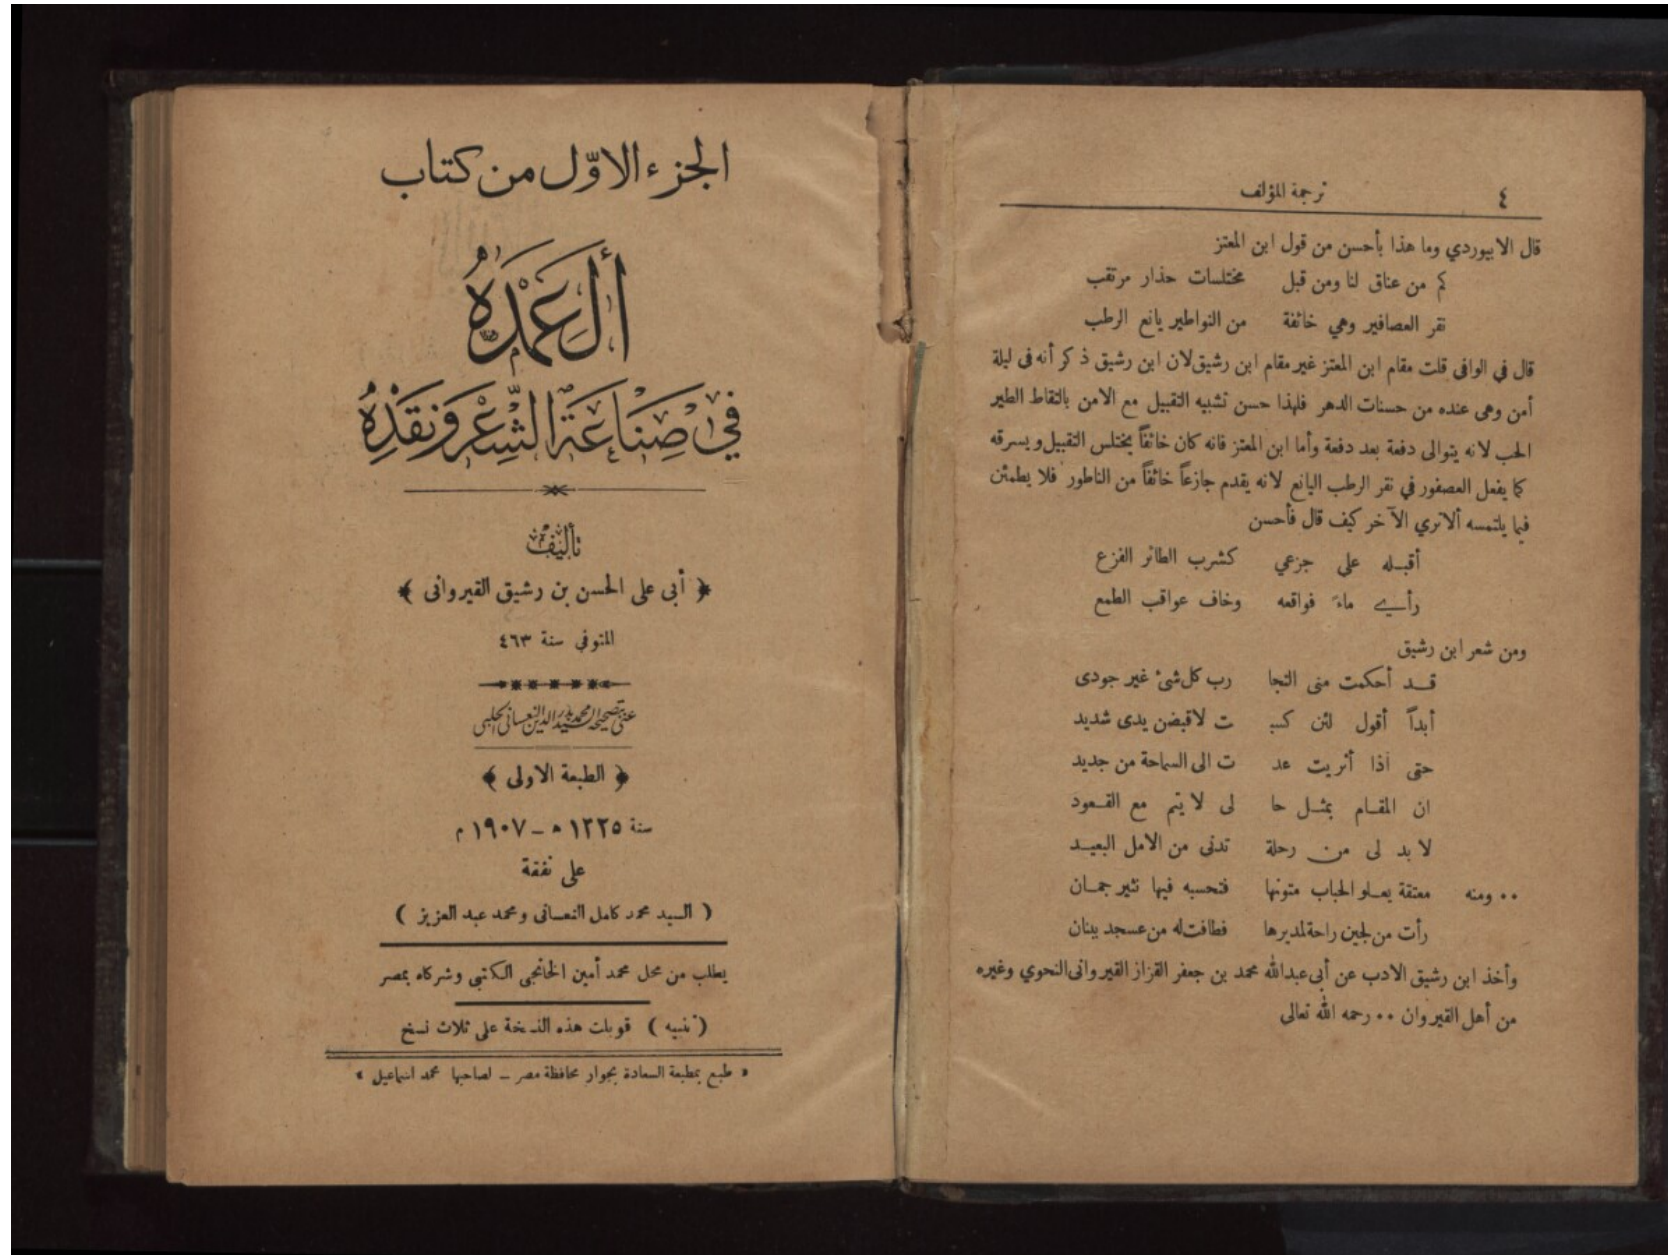 ٤
ترجمة المؤلف
قال الابيوردي وما هذا بأحسن من قول ابن المعتز
كم من عناق لنا ومن قبل مختلسات حذار مرتقب
نقر العصافير وهي خائفة من النواطير يانع الرطب
قال في الوافى قلت مقام ابن المعتز غير مقام ابن رشيق لان ابن رشيق ذكر أنه فى ليلة
أمن وهى عنده من حسنات الدهر فلهذا حسن تشبيه التقبيل مع الامن بالتقاط الطير
الحب لانه يتوالى دفعة بعد دفعة وأما ابن المعتز فانه كان خائفاً يختلس التقبيل ويسرقه
كما يفعل العصفور في نقر الرطب اليانع لانه يقدم جازعاً خائفاً من الناطور فلا يطمئن
فيما يلتمسه ألا ترى الآخر كيف قال فأحسن
أقبله علي جزعي كشرب الطائر الفزع
رأى ماءً فواقعه وخاف عواقب الطمع
ومن شعر ابن رشيق
قد أحكمت منى التجا رب كل شئ غير جودى
أبداً أقول لئن كسبـ ت لاقبضن يدى شديد
حتى اذا أثريت عد ت الى السماحة من جديد
ان المقام بمثل حا لى لا يتم مع القعود
لا بد لى من رحلة تدنى من الامل البعيد
٠٠ ومنه معتقة يعلو الحباب متونها فتحسبه فيها نثير جمان
رأت من لجين راحة لمديرها فطافت له من عسجد ببنان
وأخذ ابن رشيق الادب عن أبى عبدالله محمد بن جعفر القزاز القيروانى النحوي وغيره
من أهل القيروان ٠٠ رحمه الله تعالى
الجزء الاوّل من كتاب
ألعَمْدَهْ
في صِنَاعَة الشِّعْر وَنَقْدِهْ
تأليف
﴿ أبى على الحسن بن رشيق القيروانى ﴾
المتوفي سنة ٤٦٣
عنى بتصحيحه السيد محمد بدر الدين النعسانى الحلبى
﴿ الطبعة الاولى ﴾
سنة ١٣٢٥ ه – ١٩٠٧ م
على نفقة
( السيد محمد كامل النعسانى ومحمد عبد العزيز )
يطلب من محل محمد أمين الخانجى الكتبى وشركاه بمصر
( تنبيه ) قوبلت هذه النسخة على ثلاث نسخ
« طبع بمطبعة السعادة بجوار محافظة مصر – لصاحبها محمد اسماعيل »